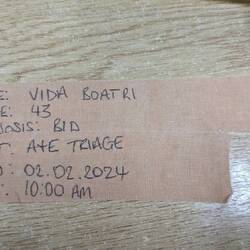 E: VIDA BOATRI
E: 43
NOSIS: BID
T: A+E TRIAGE
D: 02.02.2024
: 10:00 AM